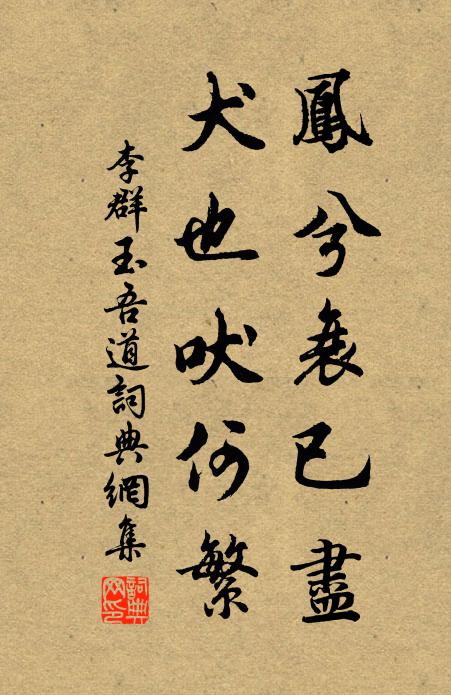 鳳兮衰已盡
犬也吠何繁
李群玉吾道詞典網集
詞典網印